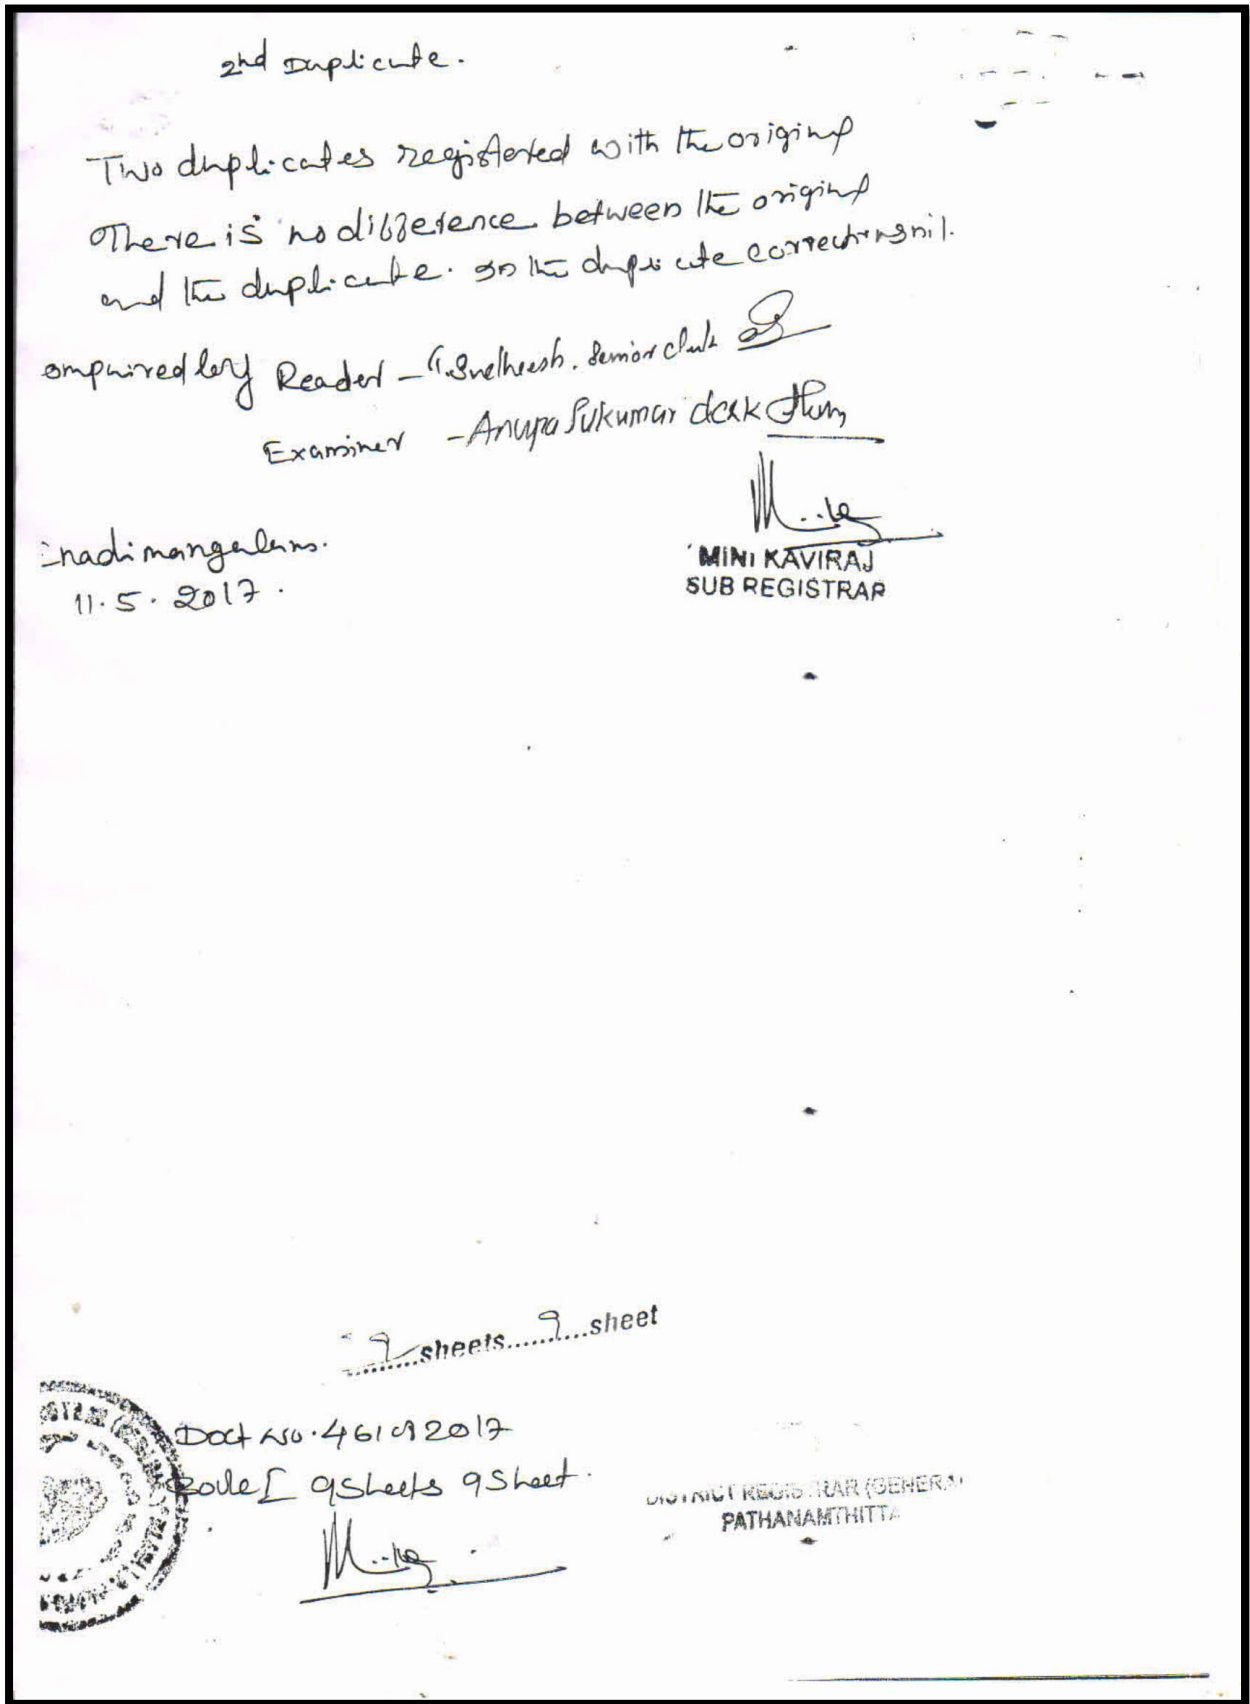 2nd Duplicate.
Two duplicates registered with the original
There is no difference between the original
and the duplicate. In the duplicate corrections nil.
ompaired by Reader - Senior clerk
Examiner - Anupa Sukumar clerk
Enadimangalam.
11.5.2017.
MINI KAVIRAJ
SUB REGISTRAR
9 sheets.......9...sheet
Doct No. 461 of 2017
Book I 9 Sheets 9 Sheet.
DISTRICT REGISTRAR (GENERAL
PATHANAMTHITTA